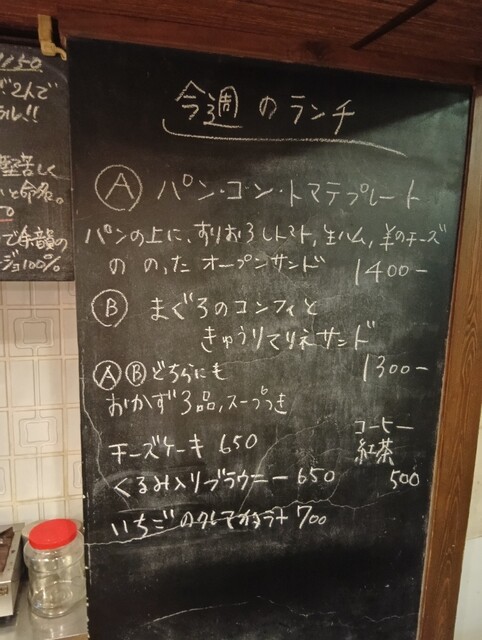 今週のランチ
Ⓐ パン・コン・トマテプレート
パンの上に、すりおろしトマト、生ハム、羊のチーズ
の のった オープンサンド 1400-
Ⓑ まぐろのコンフィと
きゅうりマリネサンド
1300-
ⒶⒷどちらにも
おかず3品、スープつき
コーヒー
紅茶
500
チーズケーキ 650
くるみ入りブラウニー 650
いちごの 700
1150
2人で
!!
堅苦しく
と命名。
で余韻の
100%